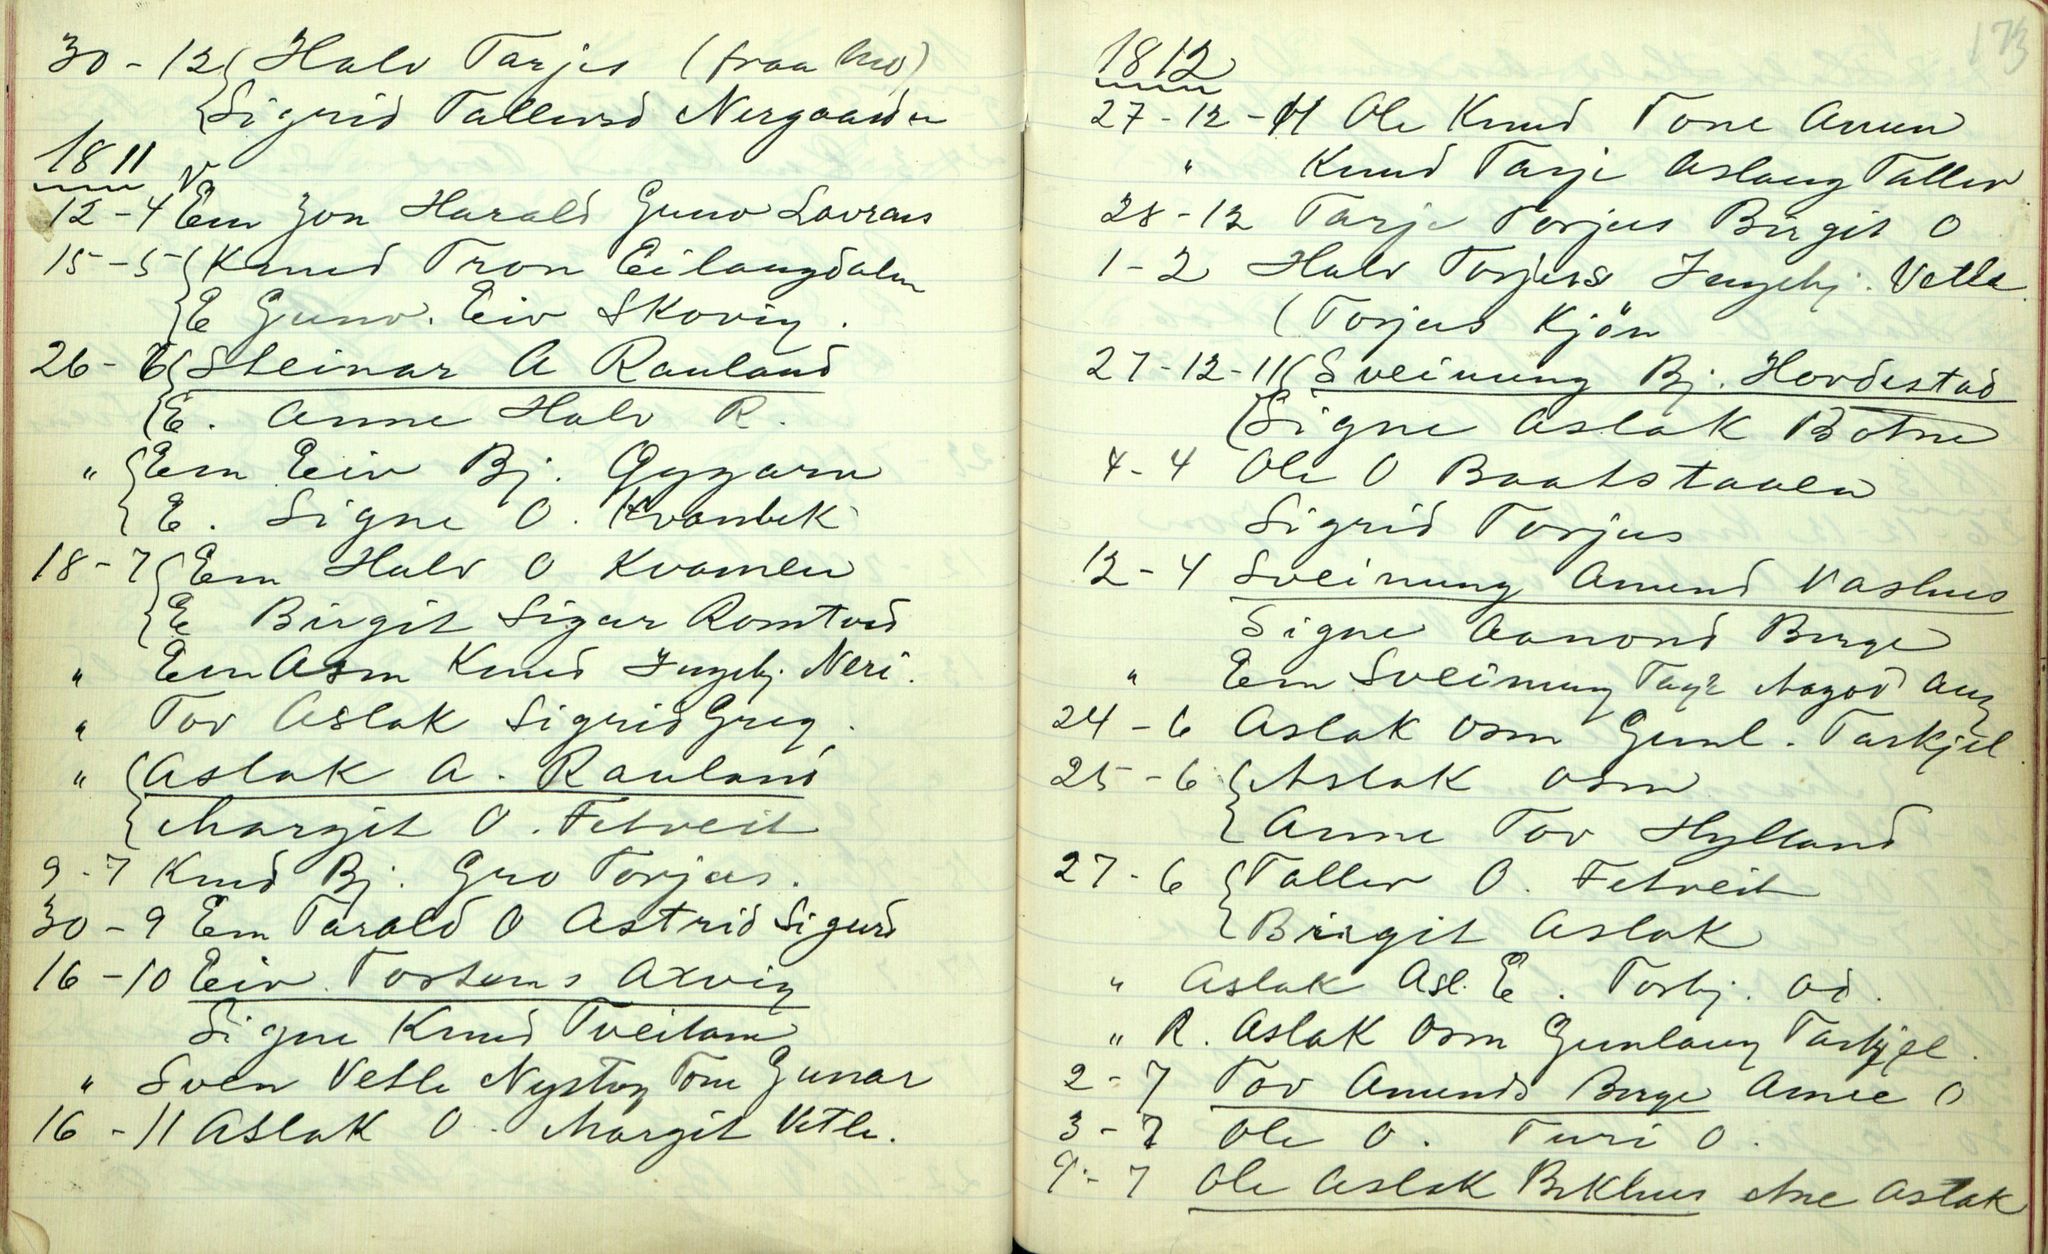 30 - 12 Halv Tarjes (fraa Mo)
Sigrid Tallevsd Nergaarden
1811
12 - 4 Em Jon Harald Gunv Lavrans
15 - 5 Knud Tron Eilaugdalen
E Gunv. Eiv Skovig.
26 - 6 Steinar A Rauland
E. Anne Halv R.
" Em Eiv Bj. Gygarn
E. Signe O. Kvambek
18 - 7 Em Halv O Kvamlen
E Birgit Sigur Romtveid
" Em Asm Knud Ingebj. Neri.
" Tov Aslak Sigrid Greg.
" Aslak A. Rauland
Margit O. Fetveit
9 - 7 Knud Bj. Gro Torjus.
30 - 9 Em Tarald O Astrid Sigurd
16 - 10 Eiv. Tostens Axvig
Signe Knud Tveitane
" Sven Vetle Nystog Tone Gunar
16 - 11 Aslak O. Margit Vetle.
173
1812
27 - 12 - 11 Ole Knud Tone Anun
" Knud Tarje Aslaug Tallev
28 - 12 Tarje Torjus Birgit O
1 - 2 Halv Torjers Ingebj. Vetle
(Torjus Kjön
27 - 12 - 11 Sveinung Bj. Hordestad
Signe Aslak Botne
4 - 4 Ole O Baatstaulen
Sigrid Torjus
12 - 4 Sveinung Amund Vashus
Signe Aamond Berge
" Em Sveinung Tarje Aagod Aug
24 - 6 Aslak Osm Gunl. Tarkjel
25 - 6 Aslak Osm
Anne Tov Hylland
27 - 6 Tallev O. Fetveit
Birgit Aslak
" Aslak Asl. E. Torbj. Od.
" R. Aslak Osm Gunlaug Tarkjel.
2 - 7 Tov Amunds Berge Anne O
3 - 7 Ole O. Turi O.
9 - 7 Ole Aslak Bekhus Ane Aslak